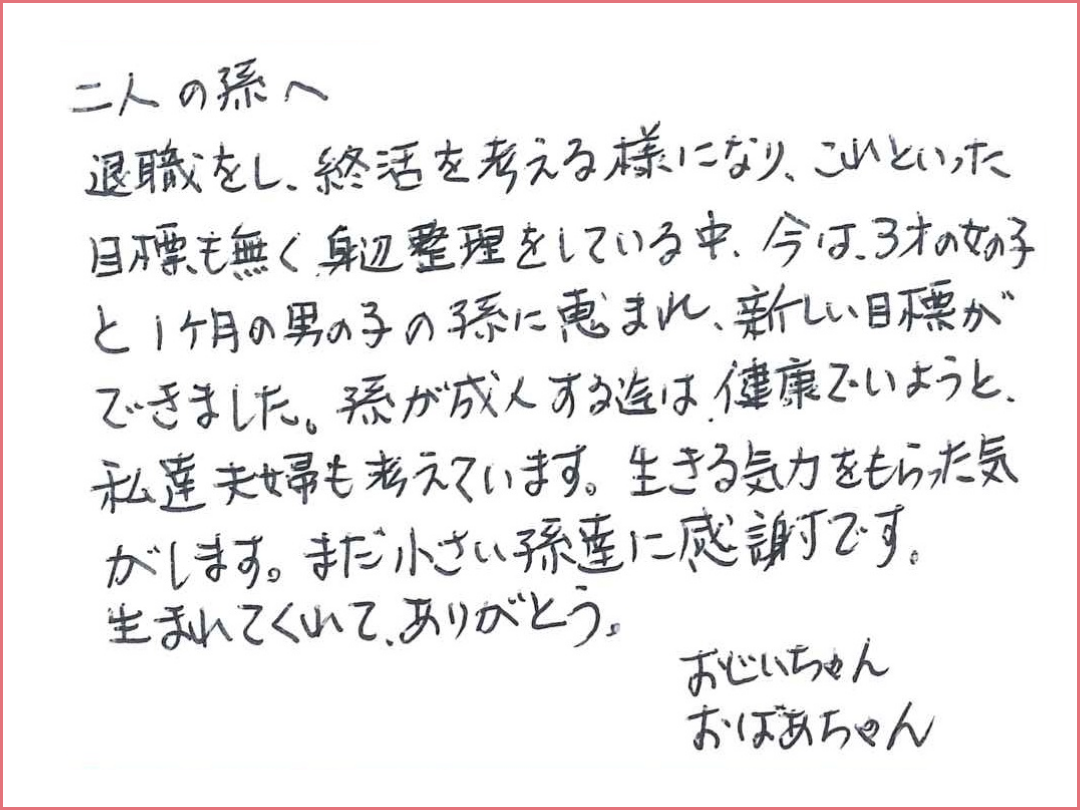 二人の孫へ
退職をし、終活を考える様になり、これといった
目標も無く身辺整理をしている中、今は、3才の女の子
と1ケ月の男の子の孫に恵まれ、新しい目標が
できました。孫が成人する迄は、健康でいようと、
私達夫婦も考えています。生きる気力をもらった気
がします。まだ小さい孫達に感謝です。
生まれてくれて、ありがとう。
おじいちゃん
おばあちゃん